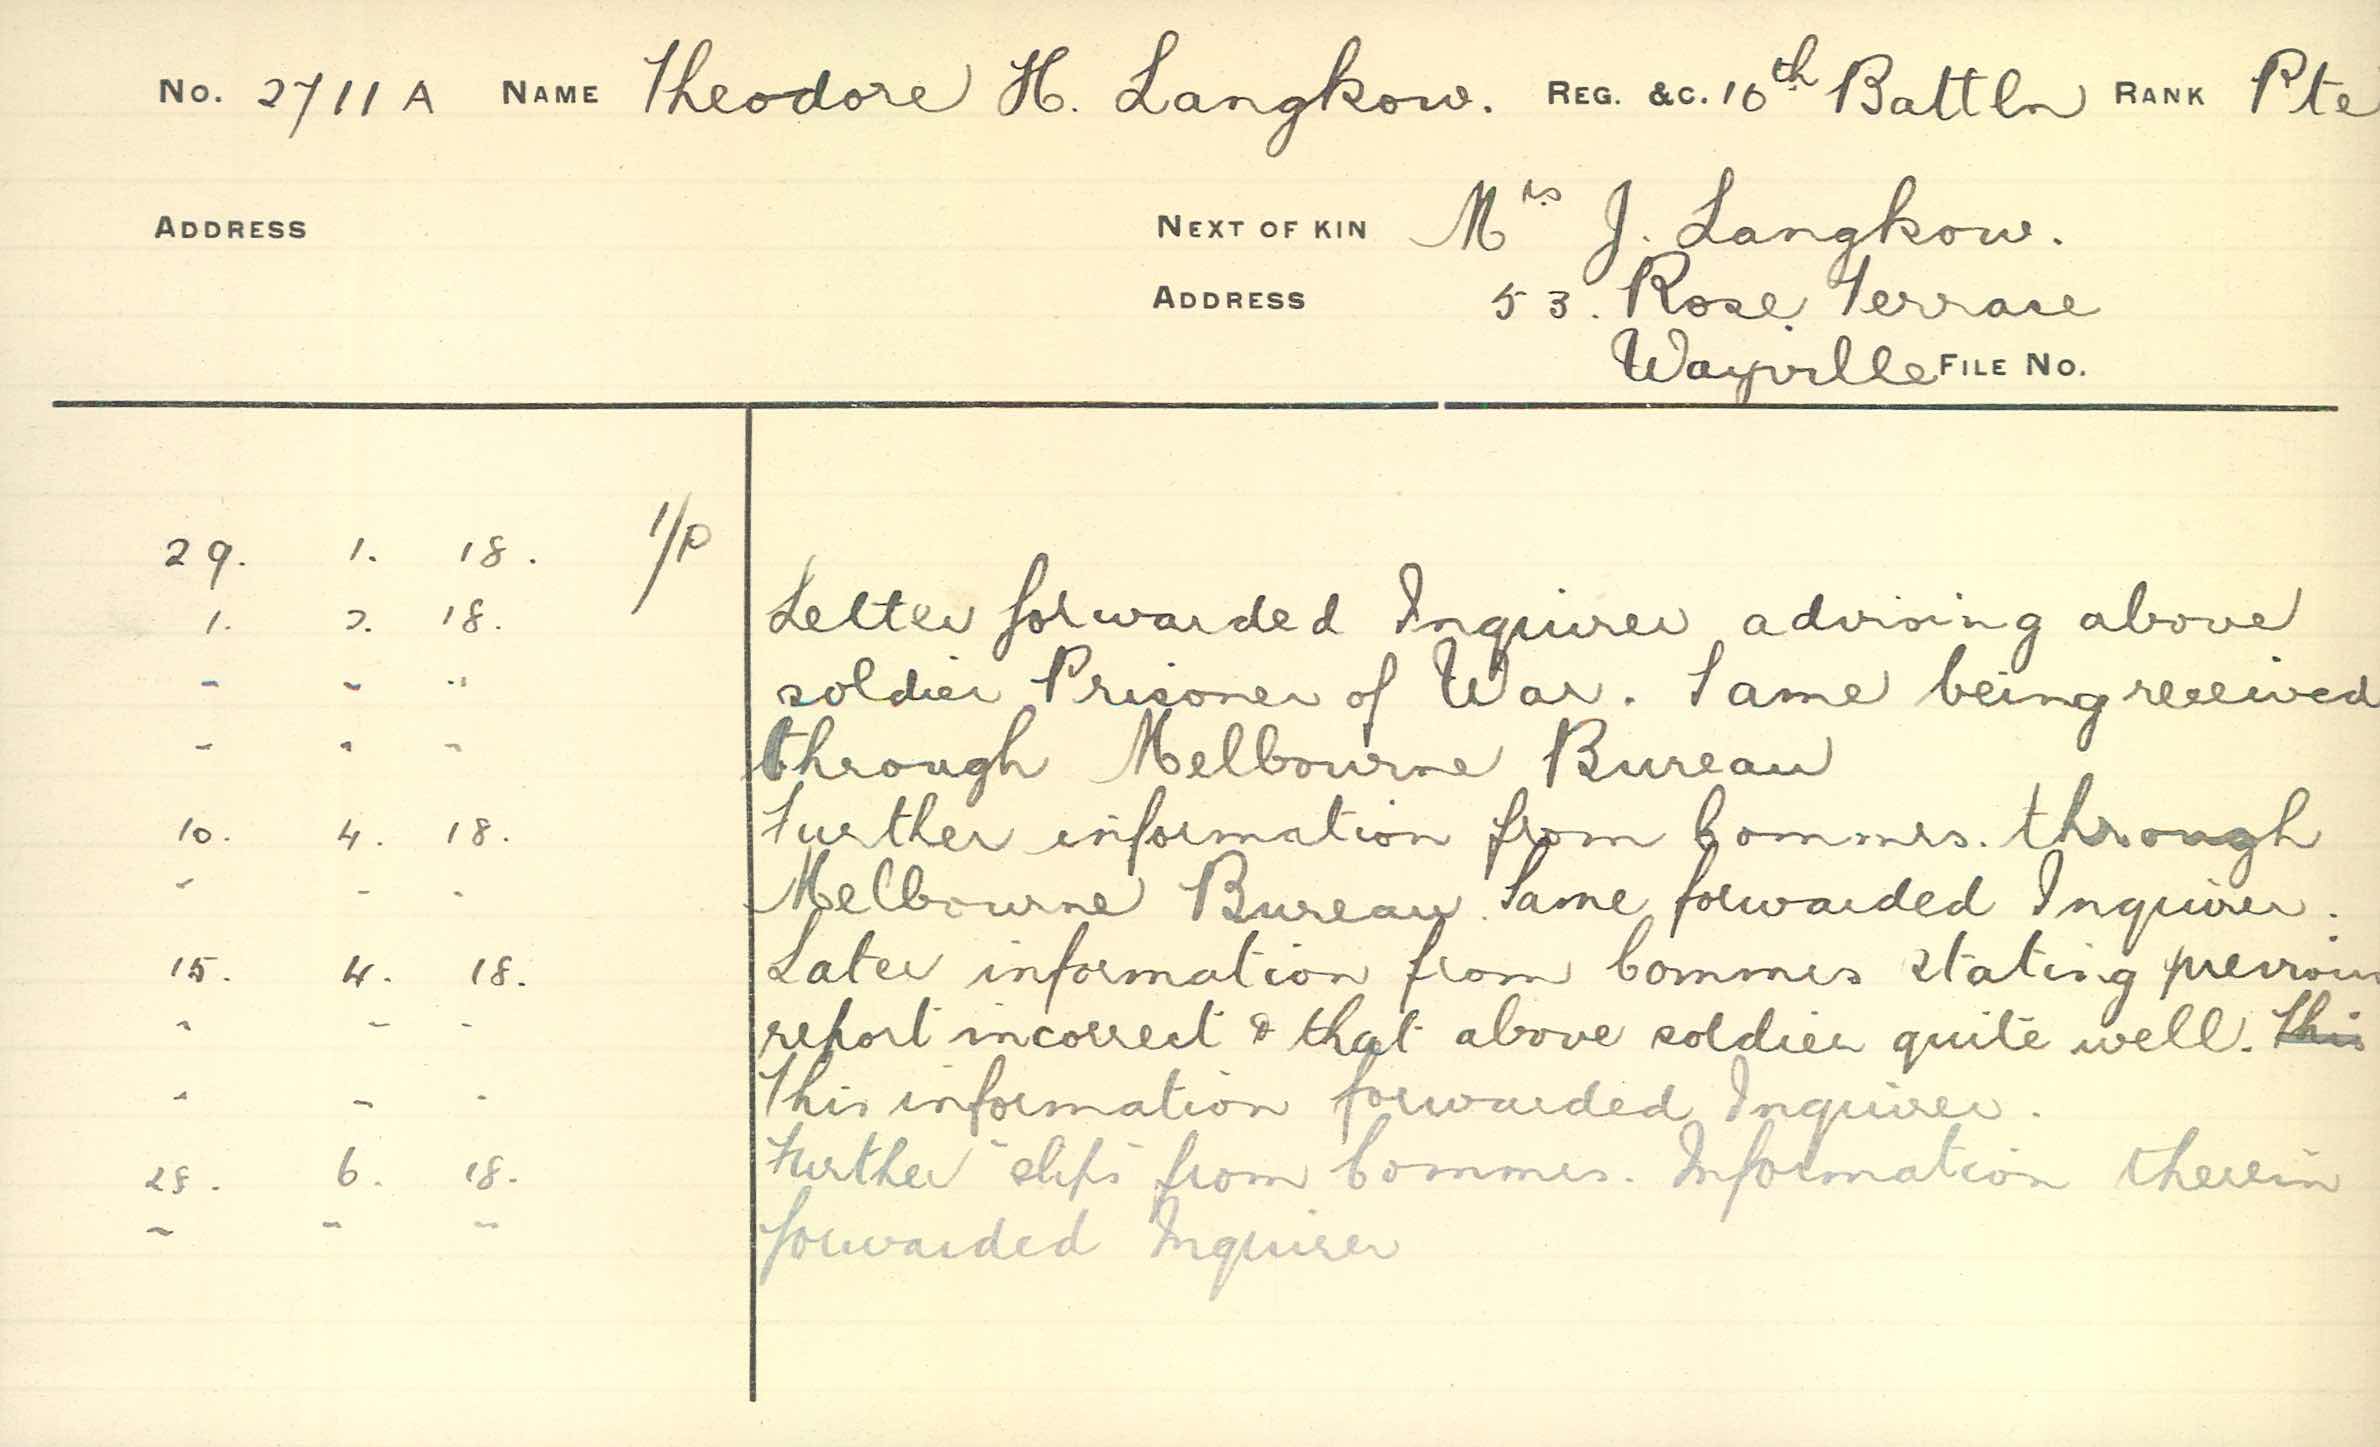 No. 2711 A NAME Theodore H. Langkow. REG. &C. 10th Battln RANK Pte
ADDRESS NEXT OF KIN Mrs J. Langkow.
ADDRESS 53. Rose Terrace
Wayville FILE No.
29. 1. 18. 1/P
1. 2. 18. Letter forwarded Inquirer advising above
" " " soldier Prisoner of War. Same being received
" " " through Melbourne Bureau
10. 4. 18. Further information from Commrs. through
" " " Melbourne Bureau. Same forwarded Inquirer.
15. 4. 18. Later information from Commrs stating previous
" " " report incorrect & that above soldier quite well. This
" " " This information forwarded Inquirer.
28. 6. 18. Further "slips" from Commrs. Information therein
" " " forwarded Inquirer